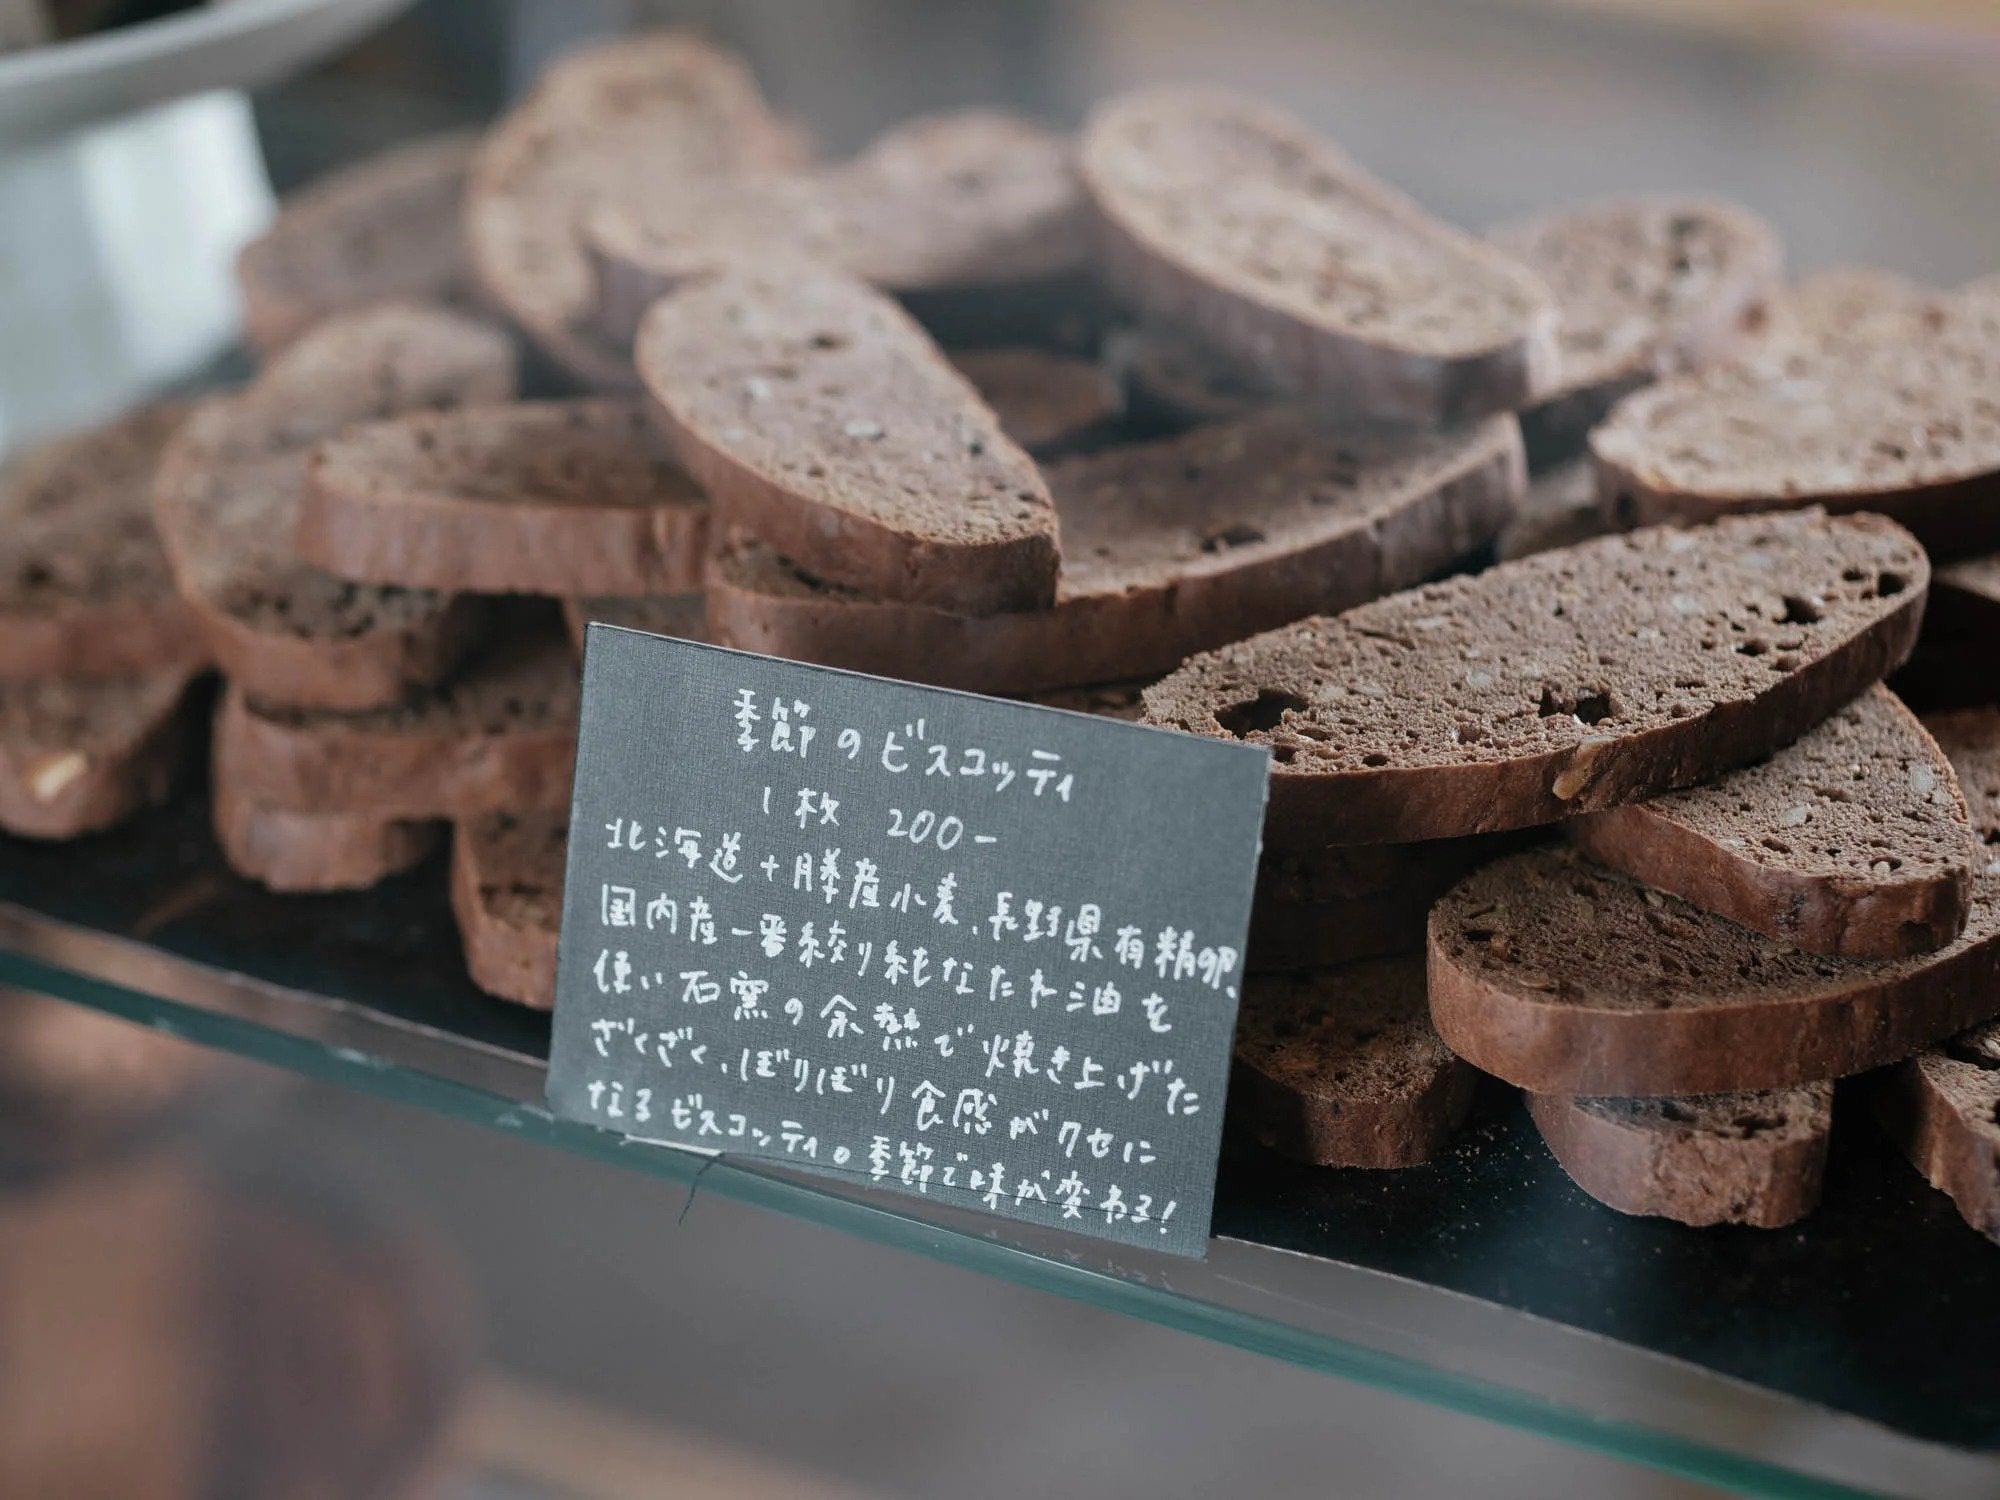 季節のビスコッティ
1枚 200-
北海道十勝産小麦、長野県有精卵、
国内産一番絞り純なたね油を
使い石窯の余熱で焼き上げた
ざくざく、ぼりぼり食感がクセに
なるビスコッティ。季節で味が変わる!